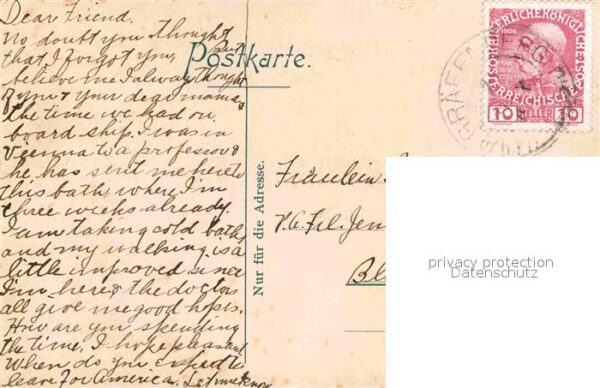 Dear Friend.
No doubt you thought
that I forgot you, but
believe me I alway thought
of you & your dear mama &
the time we had on
board ship. I was in
Vienna to a professor &
he has sent me here to
this bath, where I'm
three weeks already.
I am taking cold bath,
and my walking is a
little improved since
I'm here & the doctors
all give me good hopes.
How are you spending
the time, I hope pleasant
When do you expect to
leave for America. Let me know
Postkarte.
Nur für die Adresse.
Fräulein
Bl
1908
10 HELLER 10
GRÄFE
privacy protection
Datenschutz